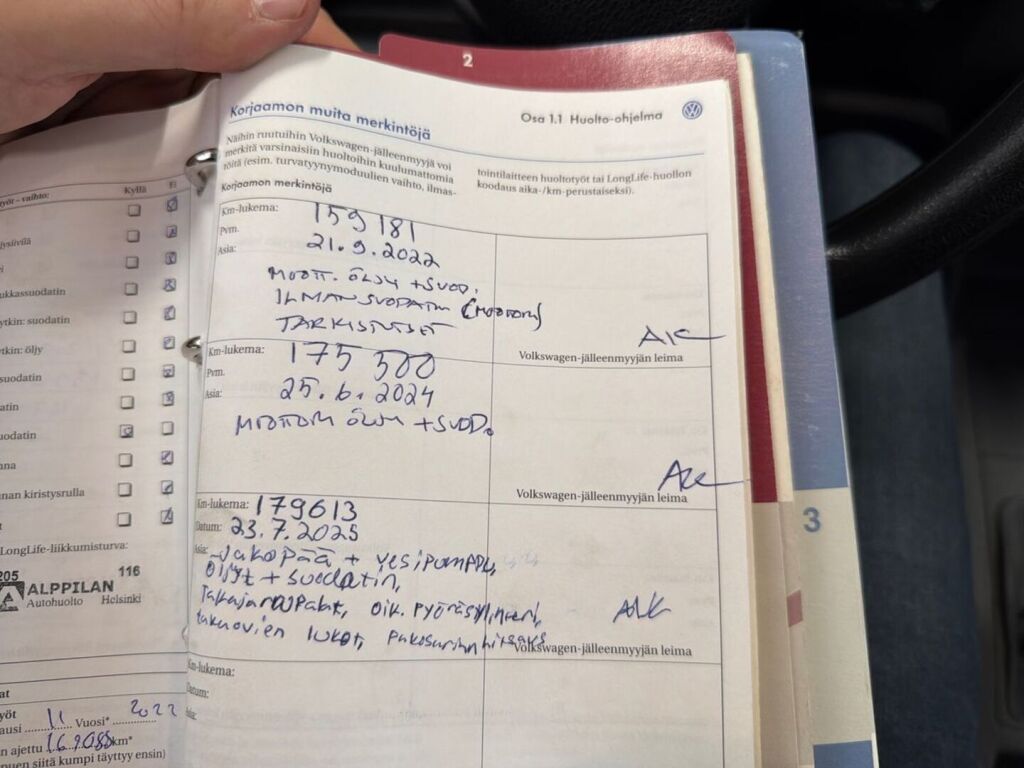 2
Korjaamon muita merkintöjä
Osa 1.1 Huolto-ohjelma
Näihin ruutuihin Volkswagen-jälleenmyyjä voi
merkitä varsinaisiin huoltoihin kuulumattomia
töitä (esim. turvatyynymoduulien vaihto, ilmas-
tointilaitteen huoltotyöt tai LongLife-huollon
koodaus aika-/km-perustaiseksi).
Korjaamon merkintöjä
Km-lukema: 159 181
Pvm. 21.9.2022
Asia:
MOOTT. ÖLJY + SUOD.
ILMANSUODATIN (MOOTTORI)
TARKISTUKSET
AIK
Volkswagen-jälleenmyyjän leima
Km-lukema: 175 500
Pvm. 25.6.2024
Asia:
MOOTTORI ÖLJY + SUOD.
Volkswagen-jälleenmyyjän leima
Km-lukema: 179613
Datum: 23.7.2025
Asia: Jakopää + vesipumppu,
Öljyt + suodatin,
Takajarrupalat, oik. pyöräsylinteri,
takaovien lukot, pakosarjan
AIK
Volkswagen-jälleenmyyjän leima
Km-lukema:
Datum:
Asia:
työt – vaihto:
Kyllä
Ei
ukkassuodatin
ytkin: suodatin
ytkin: öljy
suodatin
atin
uodatin
nna
nan kiristysrulla
LongLife-liikkumisturva:
205
116
ALPPILAN
Autohuolto Helsinki
at
yöt
ausi 11 Vuosi* 2022
n ajettu km*
puen siitä kumpi täyttyy ensin)
3